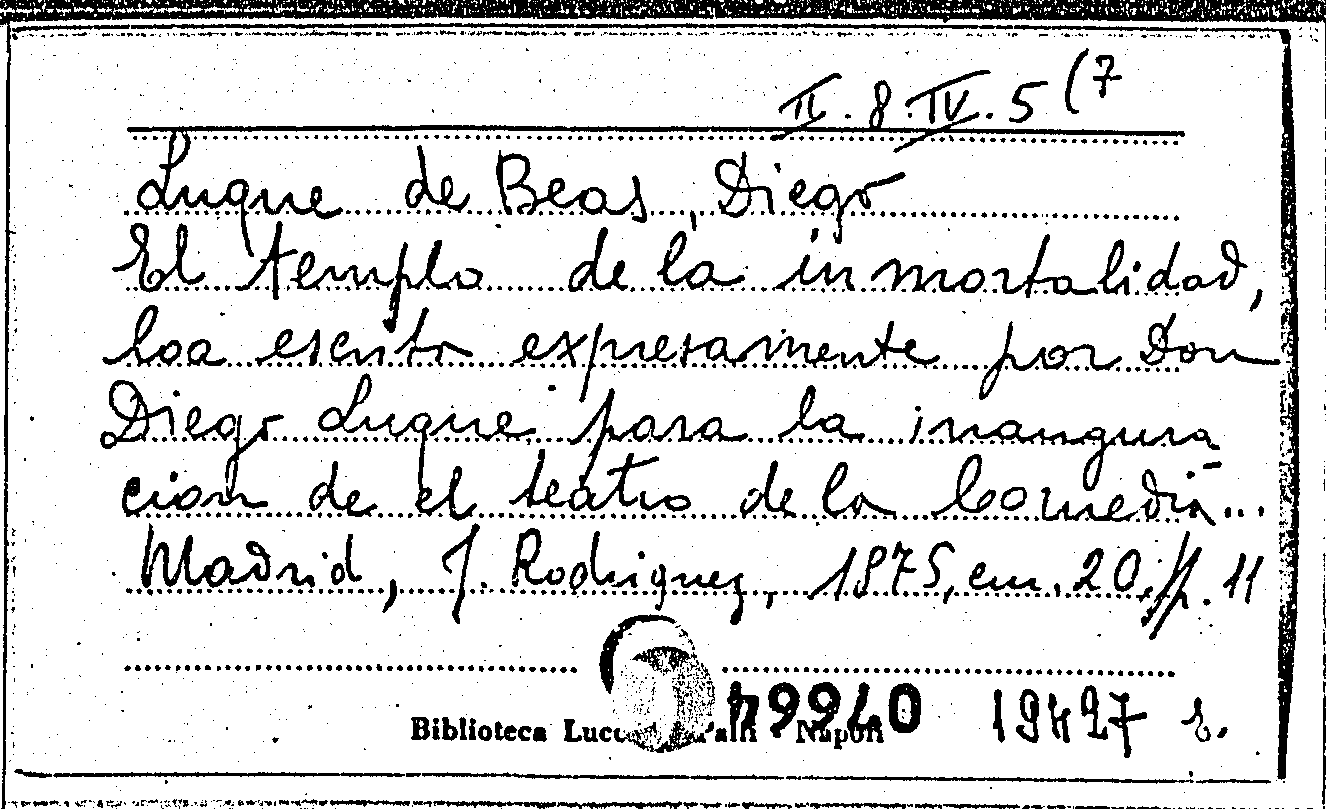 II. 8. IV. 5 (7
Luque de Beas, Diego
El templo de la inmortalidad,
loa escrita expresamente por Don
Diego Luque para la inaugura
cion de el teatro de la Comedia...
Madrid, J. Rodriguez, 1875, cm. 20, pp. 11
Biblioteca Napoli
19427 s.